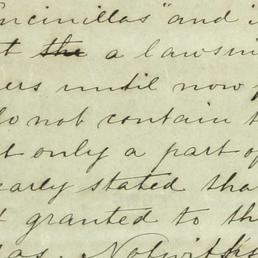 Encinillas" and i
t the a lawsui
ers until now
do not contain t
t only a part of
early stated tha
t granted to th
las. Notwiths